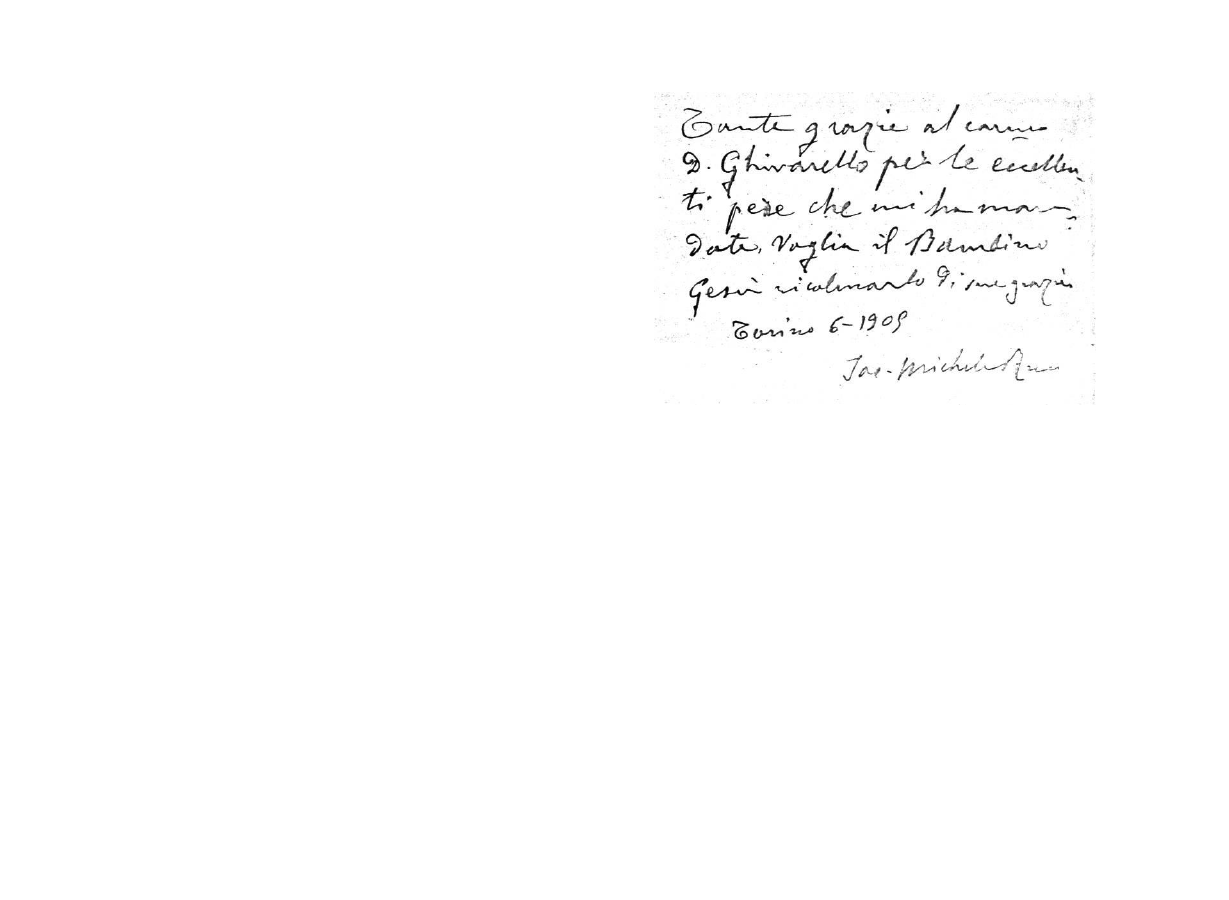 Tante grazie al carmo
D. Ghivarello per le eccellen-
ti pere che mi ha man-
date. Voglia il Bambino
Gesù ricolmarlo di sue grazie
Torino 6-1909
Sac. Michele Rua